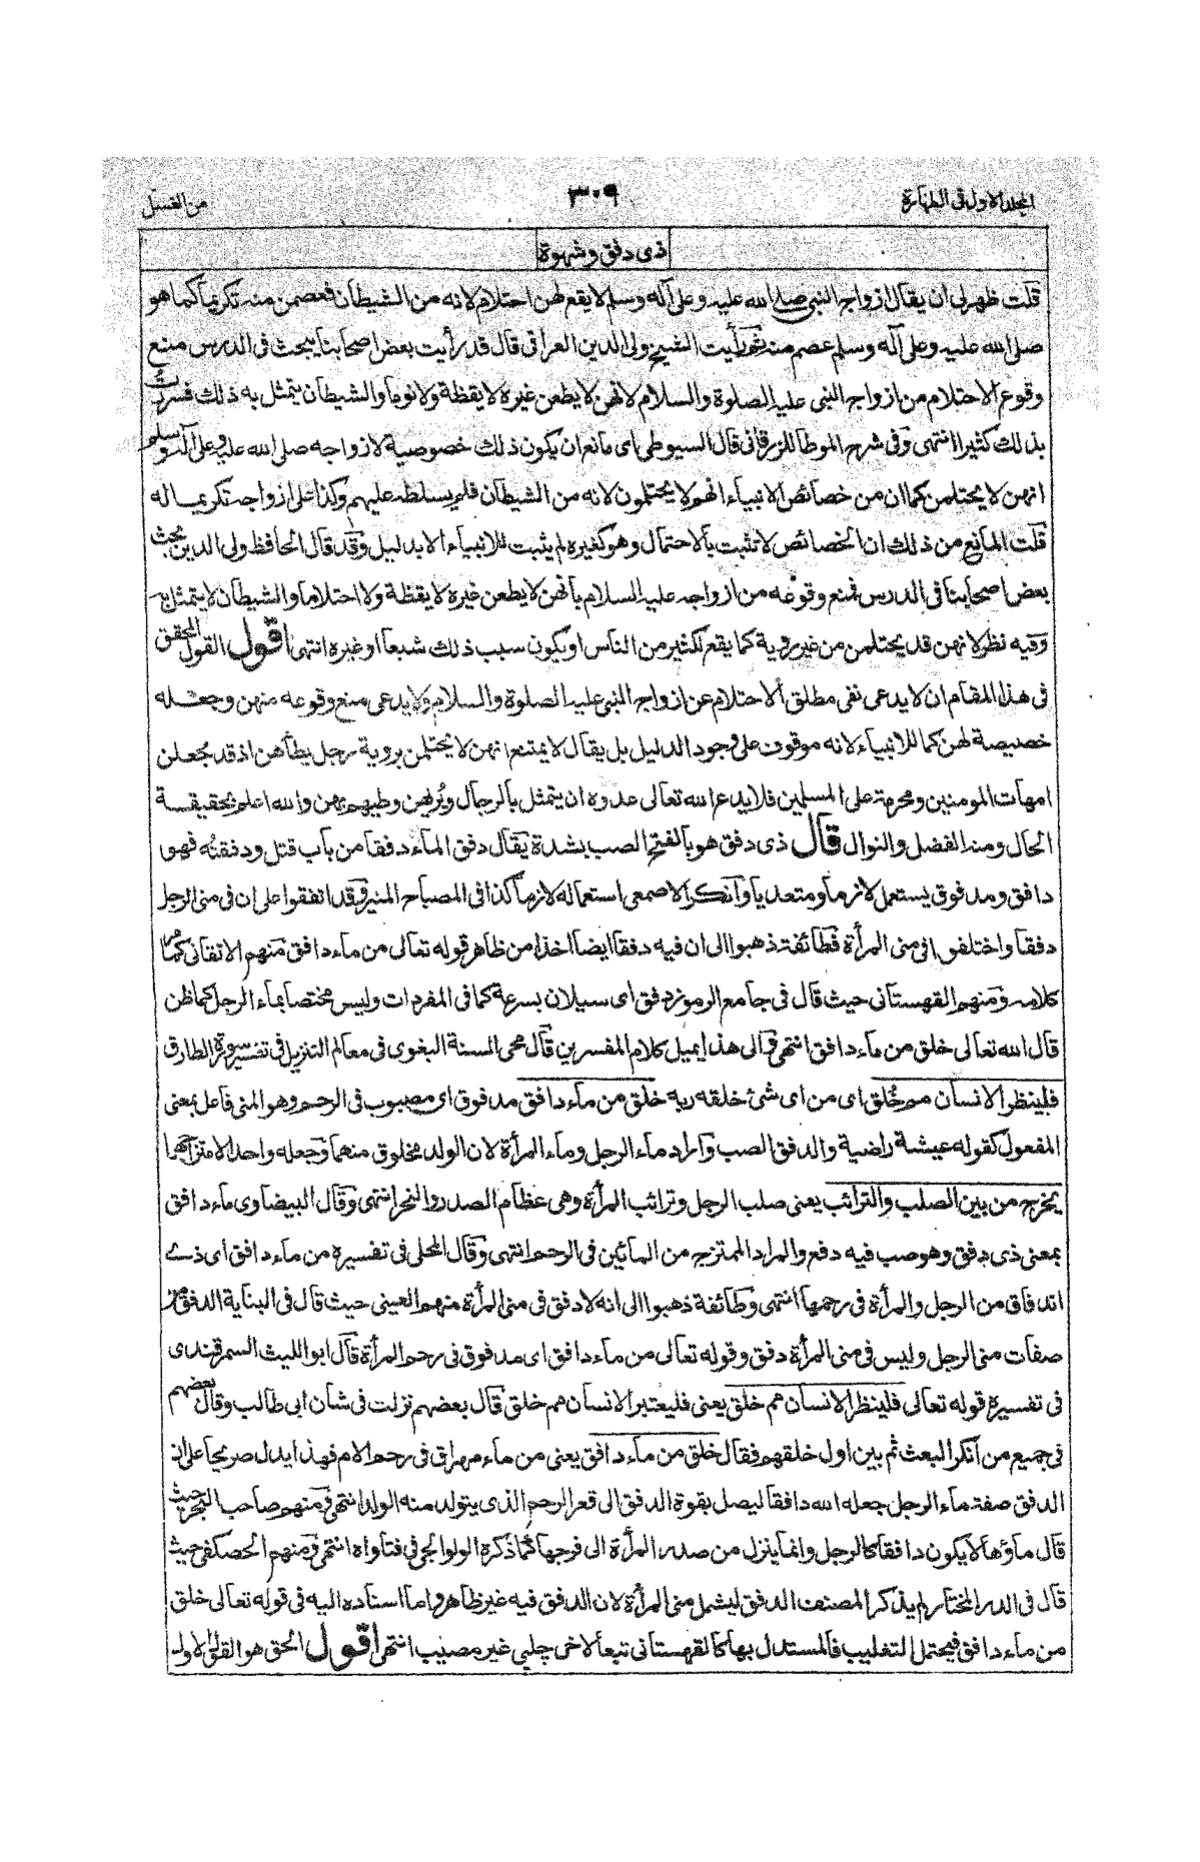 المجلد الاول فی الطهارة
٣٠٩
من الغسل
ذی دفق وشهوة
قلت ظهر لی ان يقال ازواج النبی صلی الله عليه وعلی آله وسلم لا يقع لهن احتلام لانه من الشيطان فعصمن منه تكريما كما هو
صلی الله عليه وعلی آله وسلم عصم منه ثم رأيت الشيخ ولی الدين العراقی قال قد رأيت بعض اصحابنا يبحث فی الدرس منع
وقوع الاحتلام من ازواج النبی عليه الصلوة والسلام لانهن لا يطعن غيره لا يقظة ولا نوما والشيطان يتمثل به ذلك فسررت
بذلك كثيرا انتهی وفی شرح الموطأ للزرقانی قال السيوطی ای مانع ان يكون ذلك خصوصية لازواجه صلی الله عليه وعلی آله وسلم
انهن لا يحتلمن كما ان من خصائص الانبياء انهم لا يحتلمون لانه من الشيطان فلم يسلطه عليهم وكذا علی ازواجه تكريما له
قلت المانع من ذلك ان الخصائص لا تثبت بالاحتمال وهو كغيره لم يثبت للانبياء الا بدليل وقد قال الحافظ ولی الدين بحث
بعض اصحابنا فی الدرس فمنع وقوعه من ازواجه عليه السلام بانهن لا يطعن غيره لا يقظة ولا احتلاما والشيطان لا يتمثل به
وفيه نظر لانهن قد يحتلمن من غير روية كما يقع لكثير من الناس او يكون سبب ذلك شبعا او غيره انتهی اقول القول المحقق
فی هذا المقام ان لا يدعی نفی مطلق الاحتلام عن ازواج النبی عليه الصلوة والسلام ولا يدعی منع وقوعه منهن وجعله
خصيصة لهن كما للانبياء لانه موقوف علی وجود الدليل بل يقال لا يمتنع انهن لا يحتلمن بروية رجل يطأهن اذ قد جعلن
امهات المومنين ومحرمة علی المسلمين فلا يدع الله تعالی عدوه ان يتمثل بالرجال ويريهن وطيهم بهن والله اعلم بحقيقة
الحال ومنه الفضل والنوال قال ذی دفق هو بالفتح الصب بشدة يقال دفق الماء دفقا من باب قتل ودفقته فهو
دافق ومدفوق يستعمل لازما ومتعديا وانكر الاصمعی استعماله لازما كذا فی المصباح المنير وقد اتفقوا علی ان فی منی الرجل
دفقا واختلفوا فی منی المرأة فطائفة ذهبوا الی ان فيه دفقا ايضا اخذا من ظاهر قوله تعالی من ماء دافق منهم الاتقانی كما مر
كلامه ومنهم القهستانی حيث قال فی جامع الرموز دفق ای سيلان بسرعة كما فی المفردات وليس مختصا بماء الرجل كما ظن
قال الله تعالی خلق من ماء دافق انتهی والی هذا يميل كلام المفسرين قال محی السنة البغوی فی معالم التنزيل فی تفسير سورة الطارق
فلينظر الانسان مم خلق ای من ای شئ خلقه ربه خلق من ماء دافق مدفوق ای مصبوب فی الرحم وهو المنی فاعل بمعنی
المفعول كقوله عيشة راضية والدفق الصب واراد ماء الرجل وماء المرأة لان الولد مخلوق منهما وجعله واحدا لامتزاجهما
يخرج من بين الصلب والترائب يعنی صلب الرجل وترائب المرأة وهی عظام الصدر والنحر انتهی وقال البيضاوی ماء دافق
بمعنی ذی دفق وهو صب فيه دفع والمراد الممتزج من المائين فی الرحم انتهی وقال المحلی فی تفسيره من ماء دافق ای ذے
اندفاق من الرجل والمرأة فی رحمها انتهی وطائفة ذهبوا الی انه لا دفق فی منی المرأة منهم العينی حيث قال فی البناية الدفق من
صفات منی الرجل وليس فی منی المرأة دفق وقوله تعالی من ماء دافق ای مدفوق فی رحم المرأة قال ابو الليث السمرقندی
فی تفسيره قوله تعالی فلينظر الانسان مم خلق يعنی فليعتبر الانسان مم خلق قال بعضهم نزلت فی شان ابی طالب وقال بعضهم
فی جميع من انكر البعث ثم بين اول خلقهم فقال خلق من ماء دافق يعنی من ماء مهراق فی رحم الام فهذا يدل صريحا علی ان
الدفق صفة ماء الرجل جعله الله دافقا ليصل بقوة الدفق الی قعر الرحم الذی يتولد منه الولد انتهی ومنهم صاحب البحر حيث
قال ماؤها لا يكون دافقا كالرجل وانما ينزل من صدر المرأة الی فرجها كما ذكره الولوالجی فی فتاواه انتهی ومنهم الحصكفی حيث
قال فی الدر المختار لم يذكر المصنف الدفق ليشمل منی المرأة لان الدفق فيه غير ظاهر واما اسناده اليه فی قوله تعالی خلق
من ماء دافق فيحتمل التغليب فالمستدل بها كالقهستانی تبعا لاخی چلپی غير مصيب انتهی اقول الحق هو القول الاول